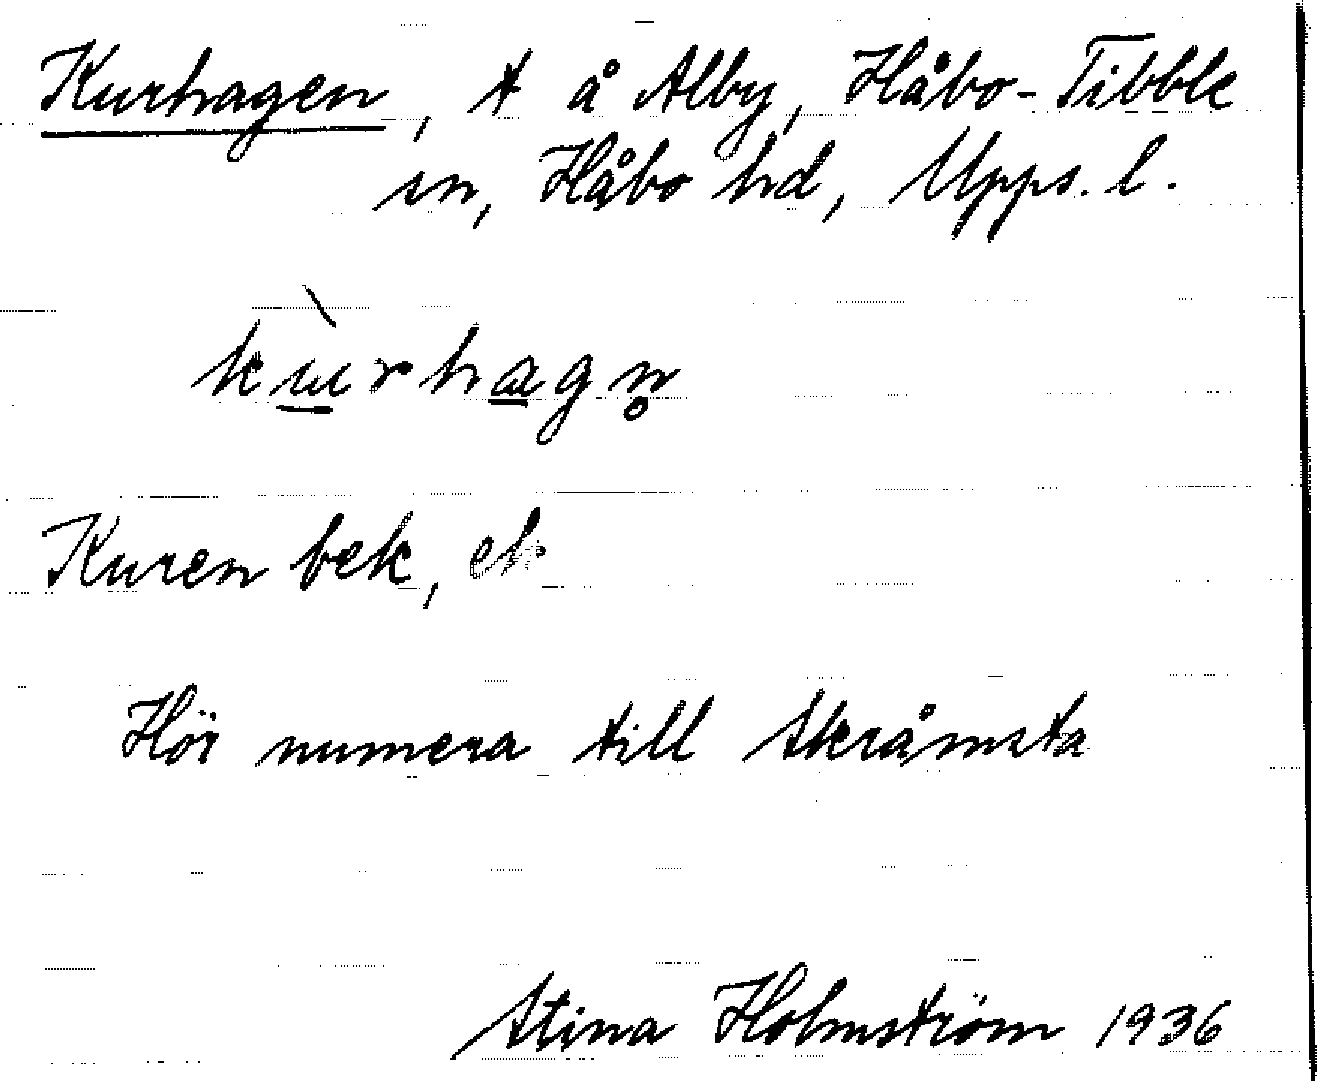 Kurhagen, t å Alby, Håbo-Tibble
sn, Håbo hd, Upps. l.
kùrhagn̥
Kuren bek,
Hör numera till Skråmsta
Stina Holmström 1936